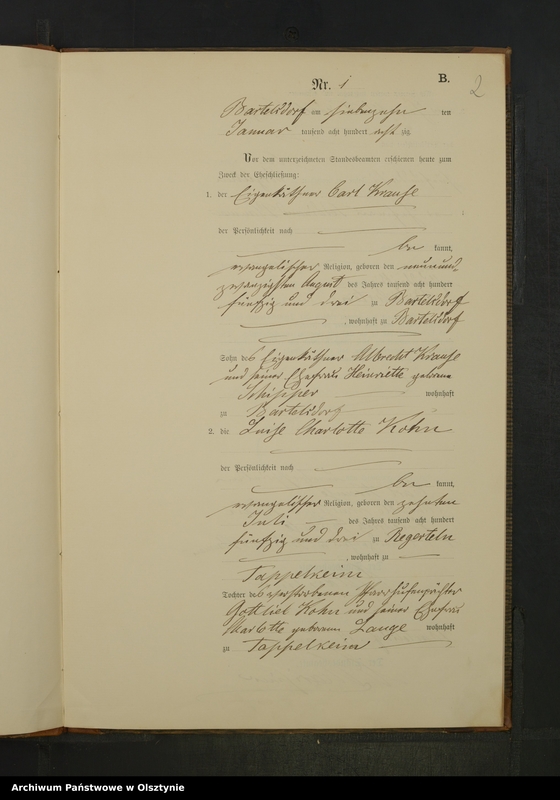 Nr. 1
B.
2
Bartelsdorf am siebenzehn ten
Januar tausend acht hundert acht zig.
Vor dem unterzeichneten Standesbeamten erschienen heute zum
Zweck der Eheschließung:
1. der Eigenkäthner Carl Krause
der Persönlichkeit nach
be kannt,
evangelischer Religion, geboren den neunund-
zwanzigsten August des Jahres tausend acht hundert
fünfzig und drei zu Bartelsdorf
, wohnhaft zu Bartelsdorf
Sohn des Eigenkäthner Albrecht Krause
und seiner Ehefrau Heinriette geborne
wohnhaft
zu Bartelsdorf
2. die Luise Charlotte Kohn
der Persönlichkeit nach
be kannt,
evangelischer Religion, geboren den zehnten
Juli des Jahres tausend acht hundert
fünfzig und drei zu Regerteln
, wohnhaft zu
Tappelkeim
Tochter des verstorbenen Pfarrhufenpächter
Gottlieb Kohn und seiner Ehefrau
Charlotte geborenen Lange wohnhaft
zu Tappelkeim
Archiwum Państwowe w Olsztynie